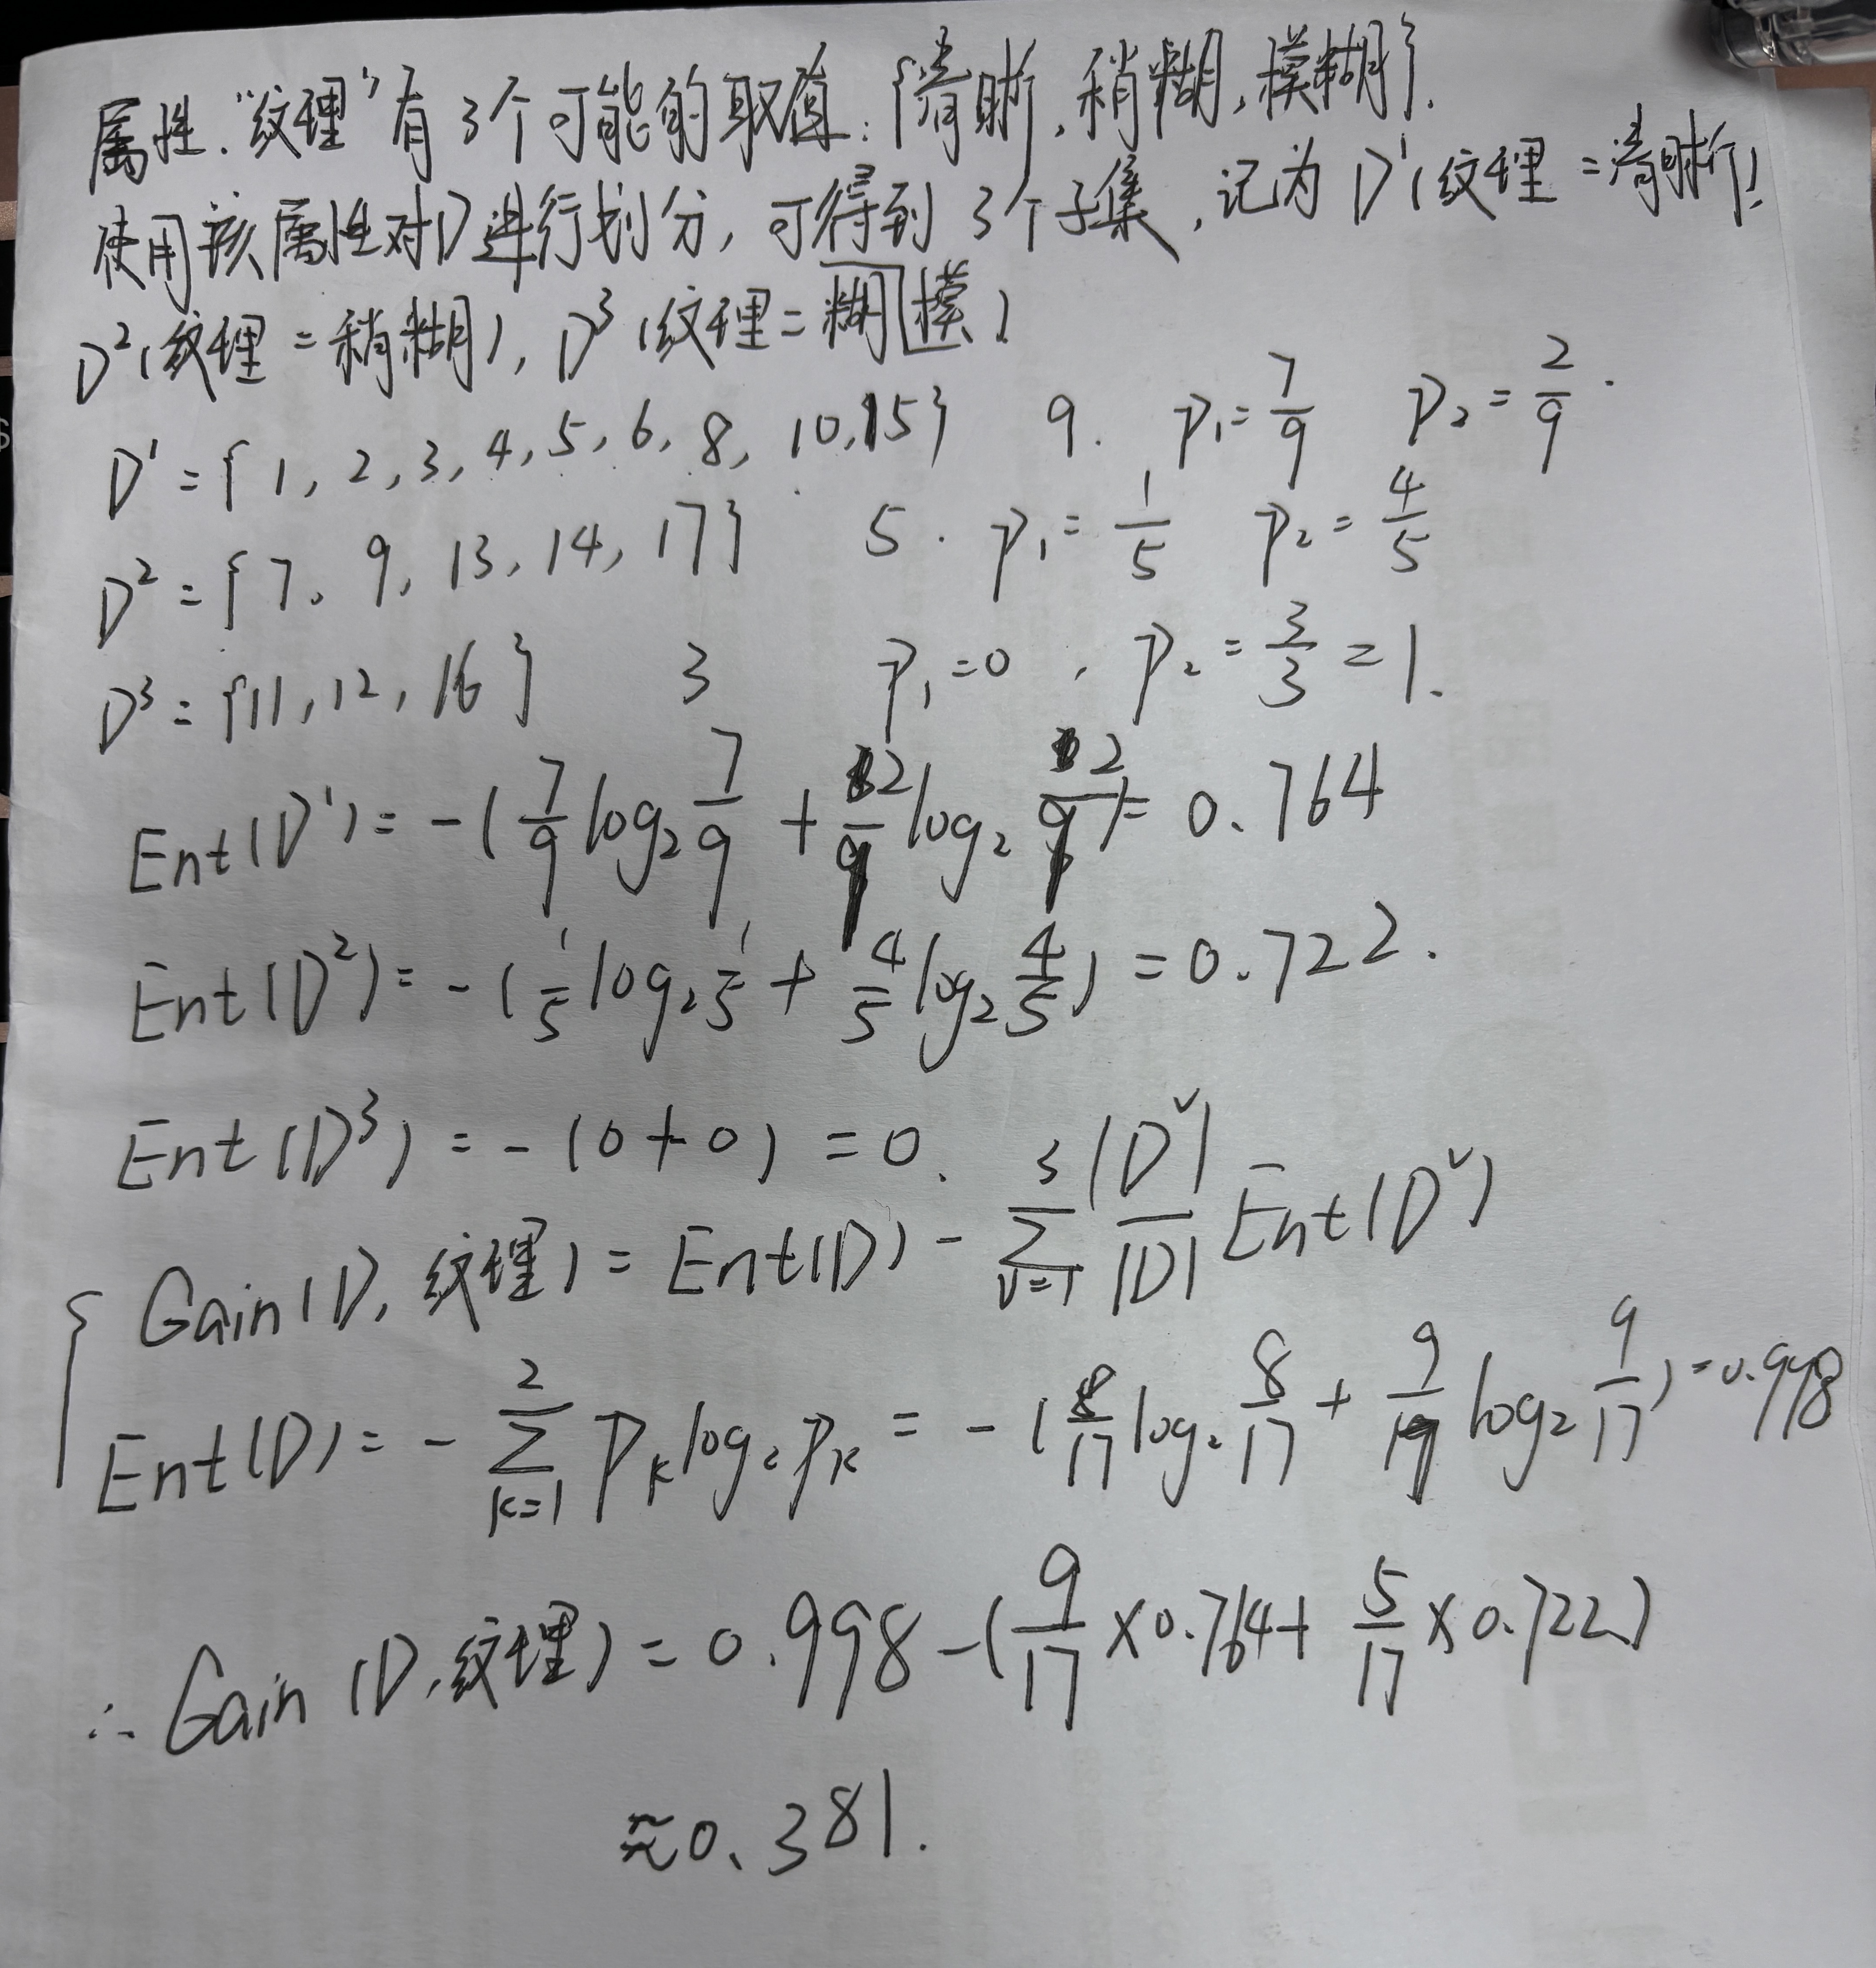 属性.“纹理”有3个可能的取值:{清晰,稍糊,模糊}.
使用该属性对D进行划分,可得到3个子集,记为D¹(纹理=清晰)
D²(纹理=稍糊), D³(纹理=糊模)
D¹={1, 2, 3, 4, 5, 6, 8, 10, 15} 9. P₁=7/9 P₂=2/9.
D²={7, 9, 13, 14, 17} 5. P₁=1/5 P₂=4/5
D³={11, 12, 16} 3 P₁=0, P₂=3/3=1.
Ent(D¹)=-(7/9 log₂ 7/9 + 2/9 log₂ 2/9)=0.764
Ent(D²)=-(1/5 log₂ 1/5 + 4/5 log₂ 4/5)=0.722.
Ent(D³)=-(0+0)=0.
Gain(D, 纹理)=Ent(D)-∑_{v=1}^{3} |Dᵛ|/|D| Ent(Dᵛ)
Ent(D)=-∑_{k=1}^{2} Pₖ log₂ Pₖ = -(8/17 log₂ 8/17 + 9/17 log₂ 9/17)=0.998
∴ Gain(D,纹理)=0.998-(9/17×0.764+5/17×0.722)
≈0.381.